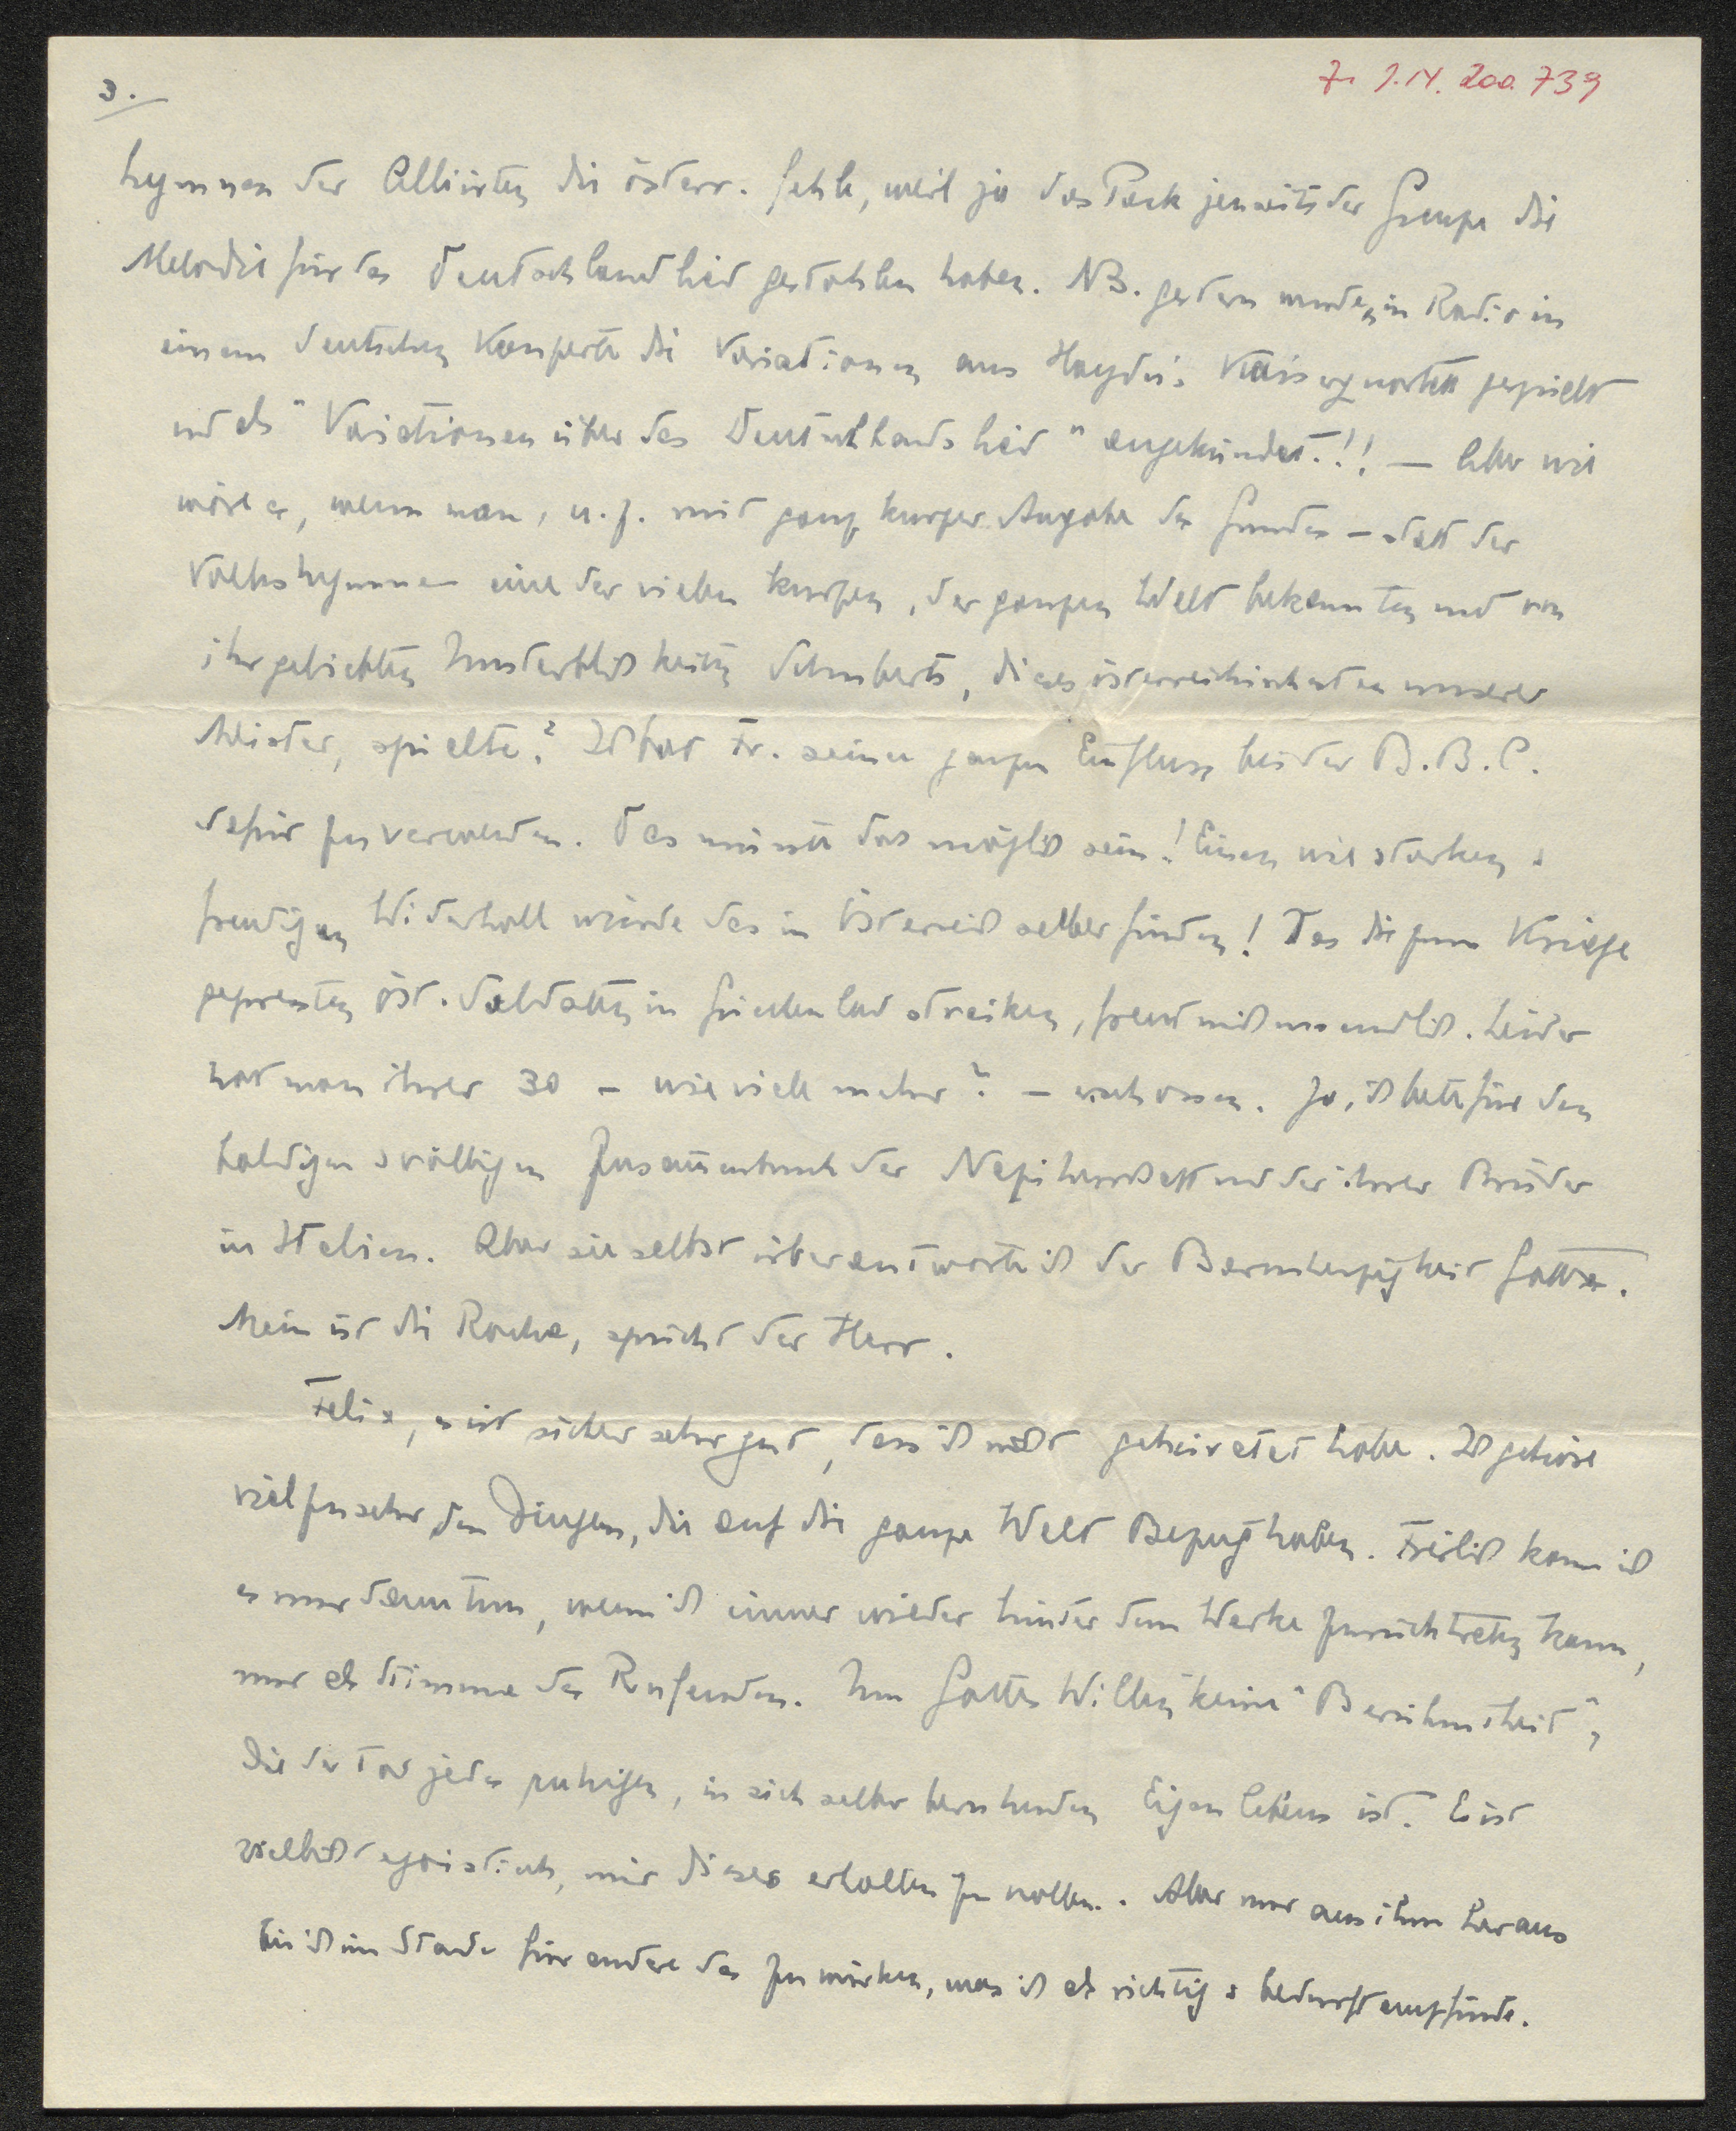 3.
J. N. 200.739
hymnen der Alliierten die österr. fehle, weil ja das Pack jenseits der Grenze die
Melodie für das Deutschlandlied gestohlen haben. NB. gestern wurden im Radio in
einem deutschen Konzerte die Variationen aus Haydn's Kaiserquartett gespielt
und als "Variationen über das Deutschlandslied" angekündet!!! — Aber wie
wäre es, wenn man, u. z. mit ganz kurzer Angabe des Grundes – statt der
Volkshymne – eine der vielen kurzen, der ganzen Welt bekannten und von
ihr geliebten Unsterblichkeiten Schuberts, dieses österreichischesten unserer
Meister, spielte? Ich bat Fr. seinen ganzen Einfluss bei der B.B.C.
dafür zu verwenden. Das müsste doch möglich sein! Einen wie starken &
freudigen Widerhall würde das in Österreich selber finden! Das die zum Kriege
gepressten öst. Soldaten in Griechenland streiken, freut mich unendlich. Leider
hat man ihrer 30 – wie viele mehr? – erschossen. Ja, ich bete für den
baldigen & völligen Zusammenbruch der Naziherrschaft und der ihrer Brüder
in Italien. Aber sie selbst überantworte ich der Barmherzigkeit Gottes.
Mein ist die Rache, spricht der Herr.
Felix, es ist sicher sehr gut, dass ich nicht geheiratet habe. Ich gehöre
viel zu sehr den Dingen, die auf die ganze Welt Bezug haben. Freilich kann ich
es nur dann tun, wenn ich immer wieder hinter dem Werke zurücktreten kann,
nur als Stimme des Rufenden. Um Gottes Willen keine "Berühmtheit",
die der Tod jedes ruhigen, in sich selber beruhenden Eigenlebens ist. Es ist
vielleicht egoistisch, mir dieses erhalten zu wollen. Aber nur aus ihm heraus
bin ich im Stande für andere das zu wirken, was ich als richtig & bedurft empfinde.